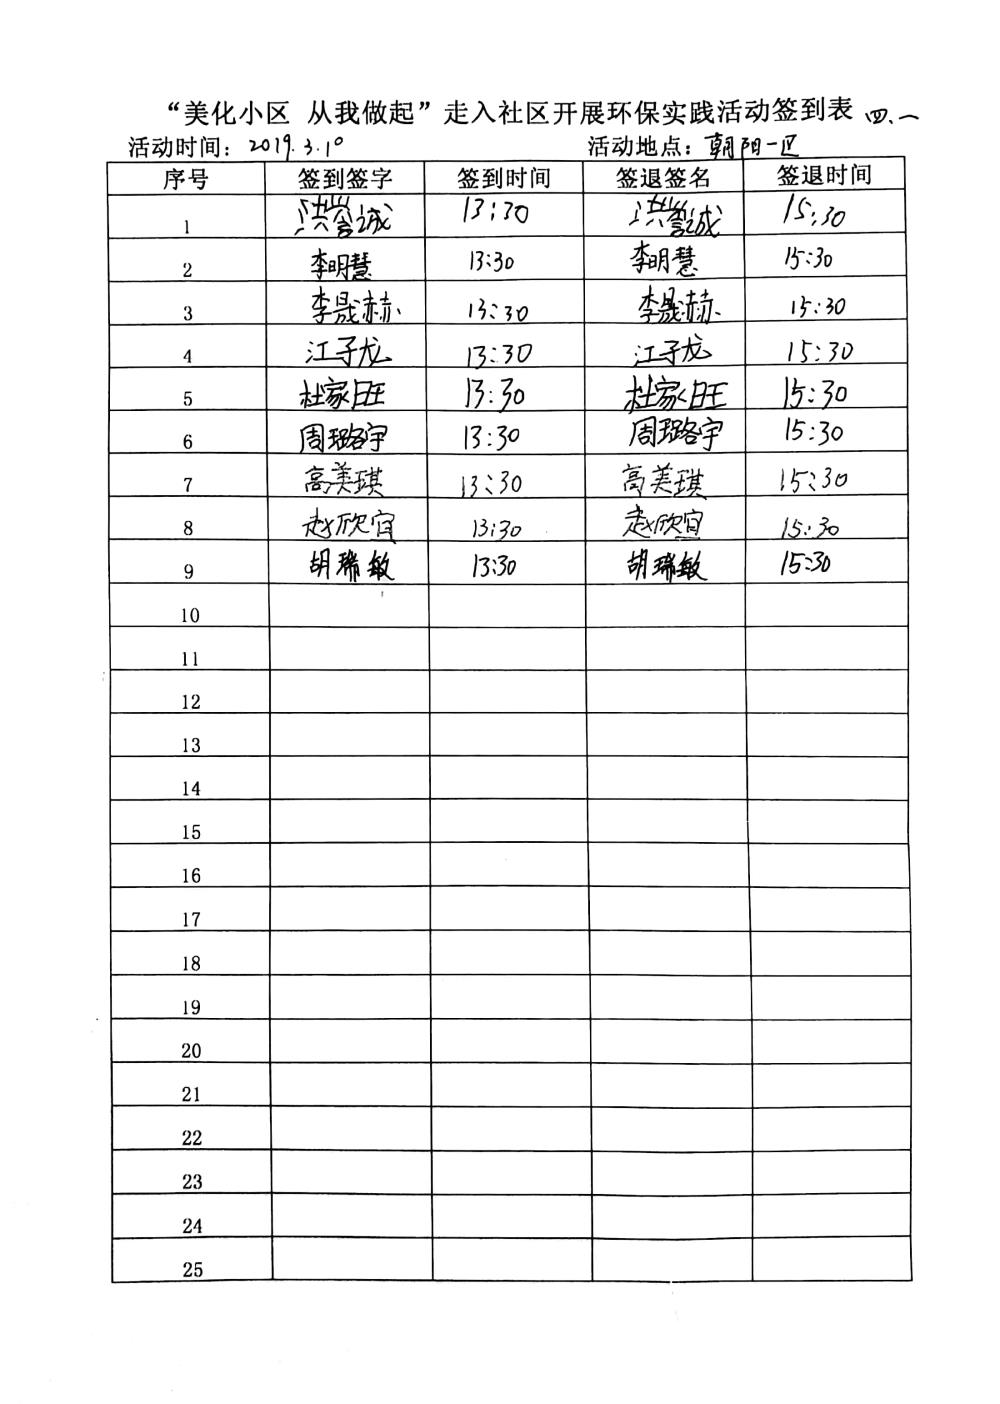 “美化小区 从我做起”走入社区开展环保实践活动签到表 四.一
活动时间：2019.3.10 活动地点：朝阳一区
序号 签到签字 签到时间 签退签名 签退时间
1 洪誉诚 13:30 洪誉诚 15:30
2 李明慧 13:30 李明慧 15:30
3 李晟赫 13:30 李晟赫 15:30
4 江子龙 13:30 江子龙 15:30
5 杜家旺 13:30 杜家旺 15:30
6 周璐宇 13:30 周璐宇 15:30
7 高美琪 13:30 高美琪 15:30
8 赵欣宜 13:30 赵欣宜 15:30
9 胡瑞敏 13:30 胡瑞敏 15:30
10
11
12
13
14
15
16
17
18
19
20
21
22
23
24
25